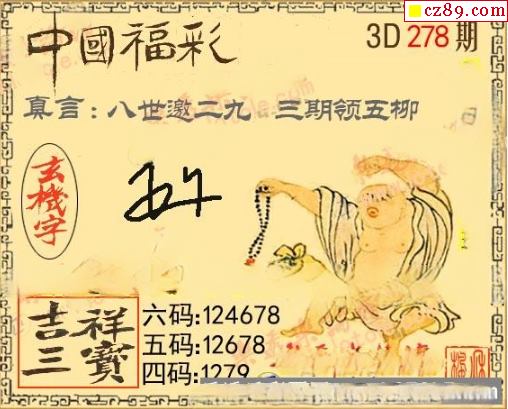 cz89.com
中國福彩
3D 278 期
真言:八世邀二九 三期领五柳
玄機字
吉祥三寶
六码:124678
五码:12678
四码:1279